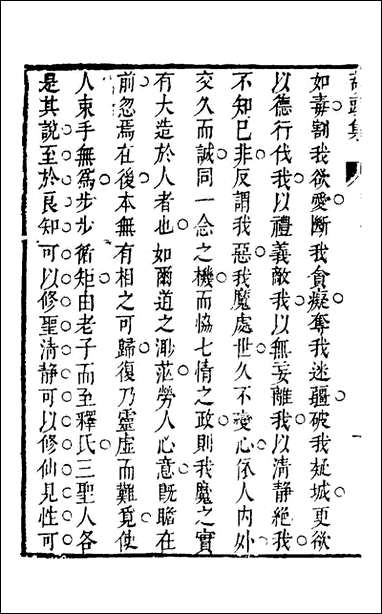 如毒割我欲愛斷我貪癡奪我迷疆破我疑城更欲
以德行伐我以禮義敵我以無妄離我以清靜絕我
不知已非反謂我惡我魔處世久不變心依人內外
交久而誠同一念之機而恊七情之政則我魔之實
有大造於人者也如爾道之渺茫勞人心意旣瞻在
前忽焉在後本無有相之可歸復乃靈虛而難覓使
人束手無爲步步循矩由老子而至釋氏三聖人各
是其說至於良知可以修聖清靜可以修仙見性可